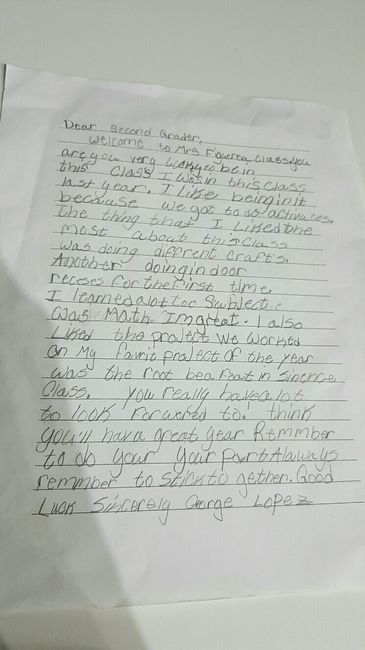 Dear Second Grader,
Welcome to Mrs Figueroa Class. you
are you very lucky to be in
this Class I was in this class
last year. I like being in it
because we got to do activates.
The thing that I liked the
most about this class
was doing diffrent crafts.
Another doing indoor
receses for the first time
I learned alot too Subject
was Math Im great. I also
Liked the project we worked
on My favrit project of the year
was the root bea Float in Sincence
Class. you really have a lot
to look forward to. I think
you'll hava great year Remmber
to do your your part Alaways
remmber to stick to gether. Good
Luck Sincerely George Lopez